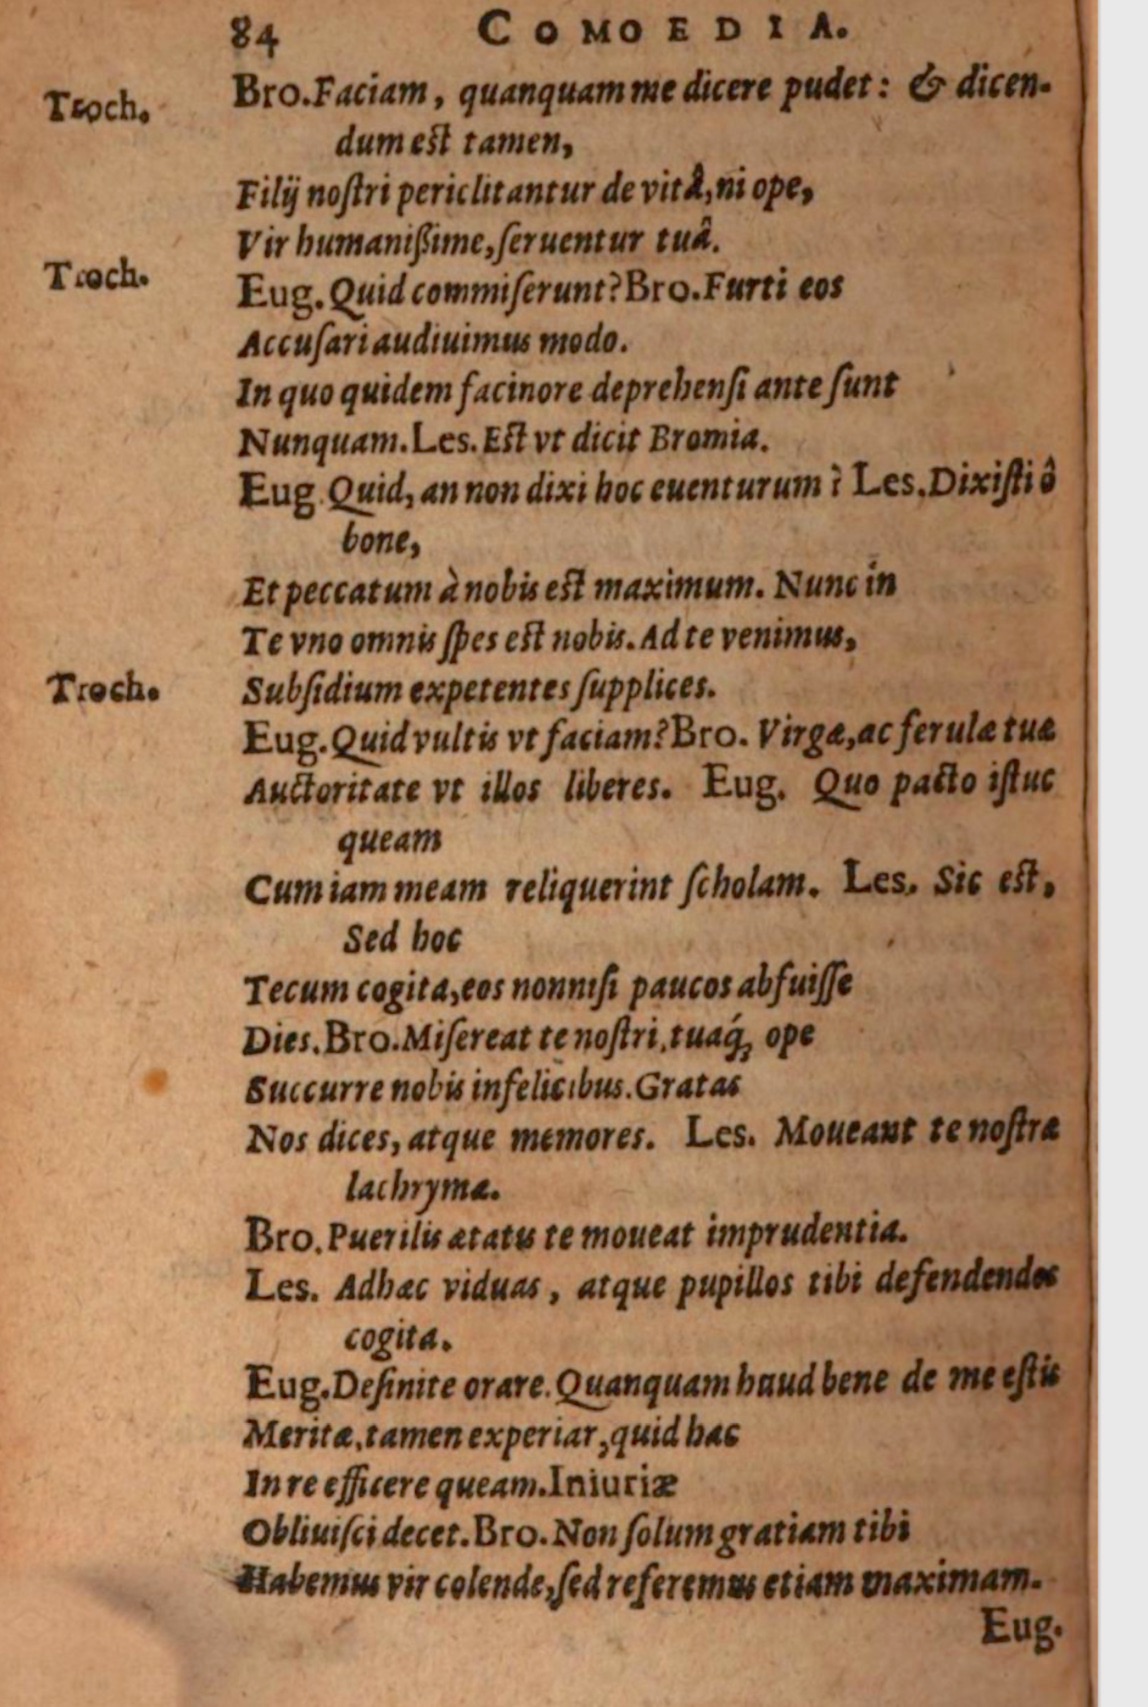 84 COMOEDIA.
Troch. Bro. Faciam, quanquam me dicere pudet: & dicen-
dum est tamen,
Filij nostri periclitantur de vitâ, ni ope,
Vir humanißime, seruentur tuâ.
Troch. Eug. Quid commiserunt? Bro. Furti eos
Accusari audiuimus modo.
In quo quidem facinore deprehensi ante sunt
Nunquam. Les. Est vt dicit Bromia.
Eug. Quid, an non dixi hoc euenturum? Les. Dixisti ô
bone,
Et peccatum à nobis est maximum. Nunc in
Te vno omnis spes est nobis. Ad te venimus,
Troch. Subsidium expetentes supplices.
Eug. Quid vultis vt faciam? Bro. Virgæ, ac ferulæ tuæ
Auctoritate vt illos liberes. Eug. Quo pacto istuc
queam
Cum iam meam reliquerint scholam. Les. Sic est,
Sed hoc
Tecum cogita, eos nonnisi paucos abfuisse
Dies. Bro. Misereat te nostri, tuaq́; ope
Succurre nobis infelicibus. Gratas
Nos dices, atque memores. Les. Moueant te nostræ
lachrymæ.
Bro. Puerilis ætatis te moueat imprudentia.
Les. Adhæc viduas, atque pupillos tibi defendendos
cogita.
Eug. Desinite orare. Quanquam haud bene de me estis
Meritæ, tamen experiar, quid hac
In re efficere queam. Iniuriæ
Obliuisci decet. Bro. Non solum gratiam tibi
Habemus vir colende, sed referemus etiam maximam.
Eug.